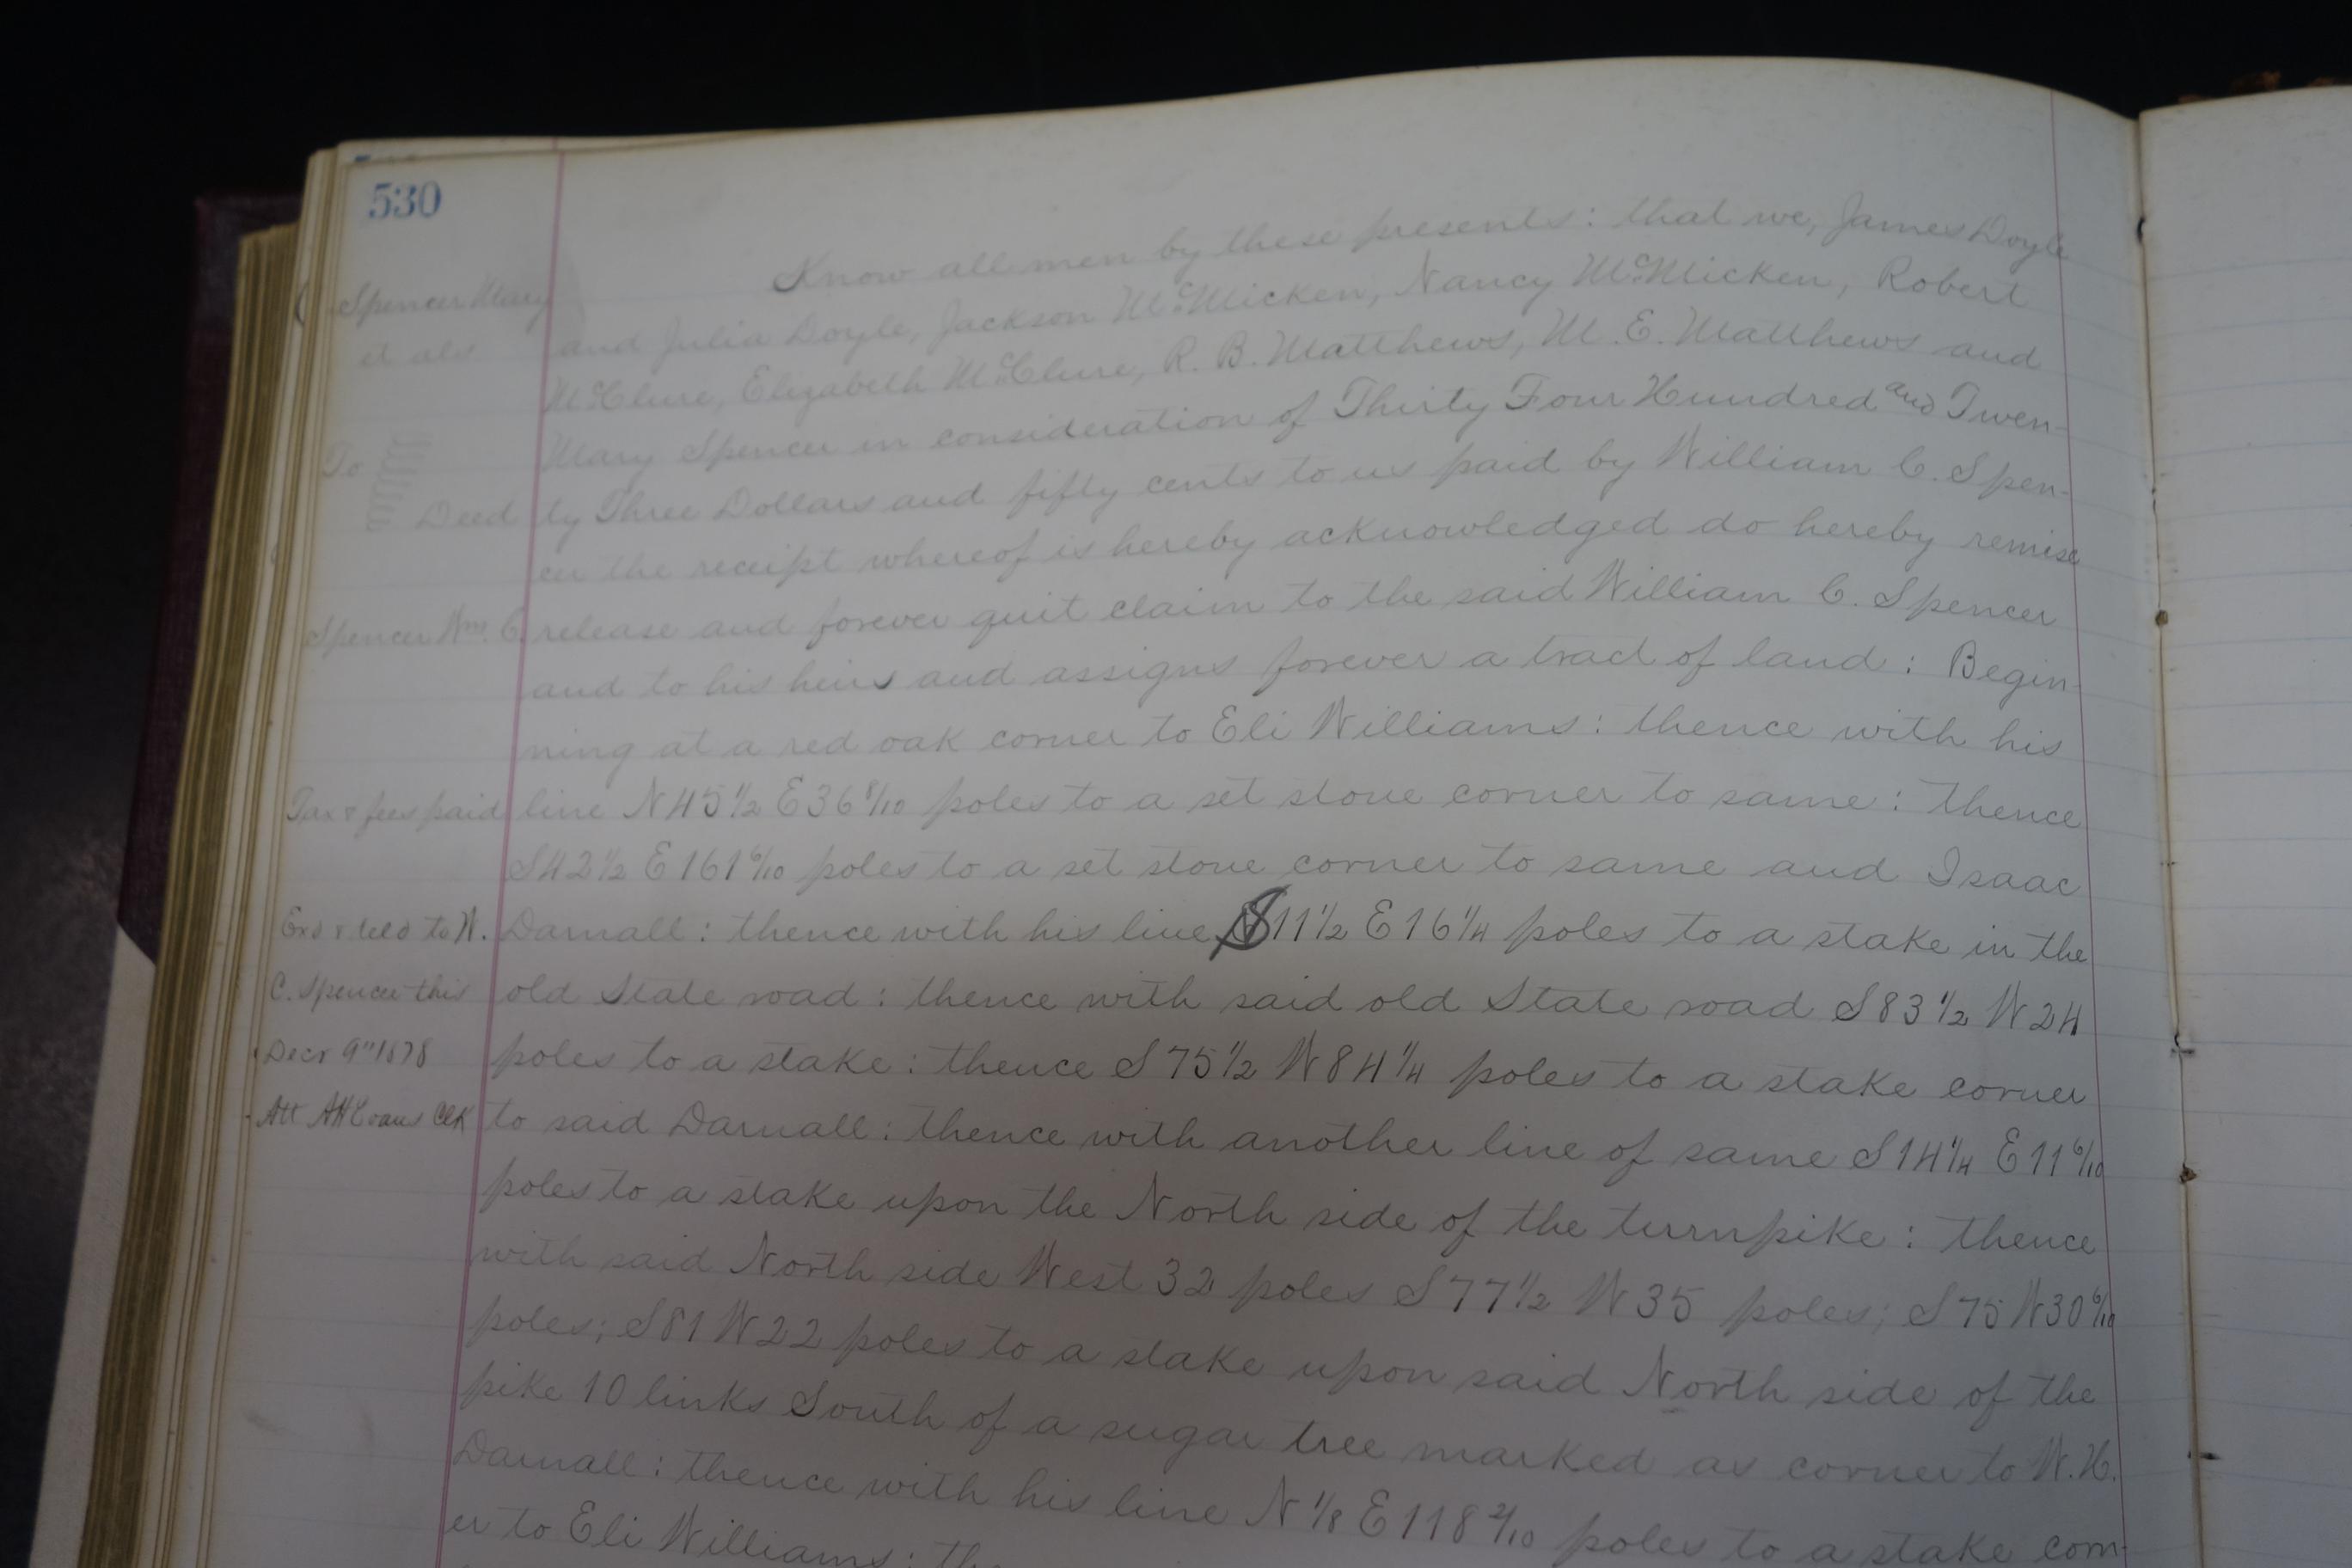 530
Know all men by these presents: that we, James Doyle
Spencer Mary
et als
and Julia Doyle, Jackson McMicken, Nancy McMicken, Robert
McClure, Elizabeth McClure, R. B. Matthews, M. E. Matthews and
Mary Spencer in consideration of Thirty Four Hundred and Twen-
To
Deed
ty Three Dollars and fifty cents to us paid by William C. Spen-
cer the receipt whereof is hereby acknowledged do hereby remise
Spencer Wm. C.
release and forever quit claim to the said William C. Spencer
and to his heirs and assigns forever a tract of land: Begin-
ning at a red oak corner to Eli Williams: thence with his
Tax & fees paid
line N 45 1/2 E 36 8/10 poles to a set stone corner to same: thence
S 42 1/2 E 161 6/10 poles to a set stone corner to same and Isaac
Exd & deld to W.
Darnall: thence with his line S 11 1/2 E 16 1/4 poles to a stake in the
C. Spencer this
old State road: thence with said old State road S 83 1/2 W 24
Decr 9" 1878
poles to a stake: thence S 75 1/2 W 84 1/4 poles to a stake corner
Att AH Evans Clk
to said Darnall: thence with another line of same S 14 1/4 E 11 6/10
poles to a stake upon the North side of the turnpike: thence
with said North side West 32 poles S 77 1/2 W 35 poles; S 75 W 30 6/10
poles; S 81 W 22 poles to a stake upon said North side of the
pike 10 links South of a sugar tree marked as corner to W. H.
Darnall: thence with his line N 1/8 E 118 2/10 poles to a stake corn-
er to Eli Williams: